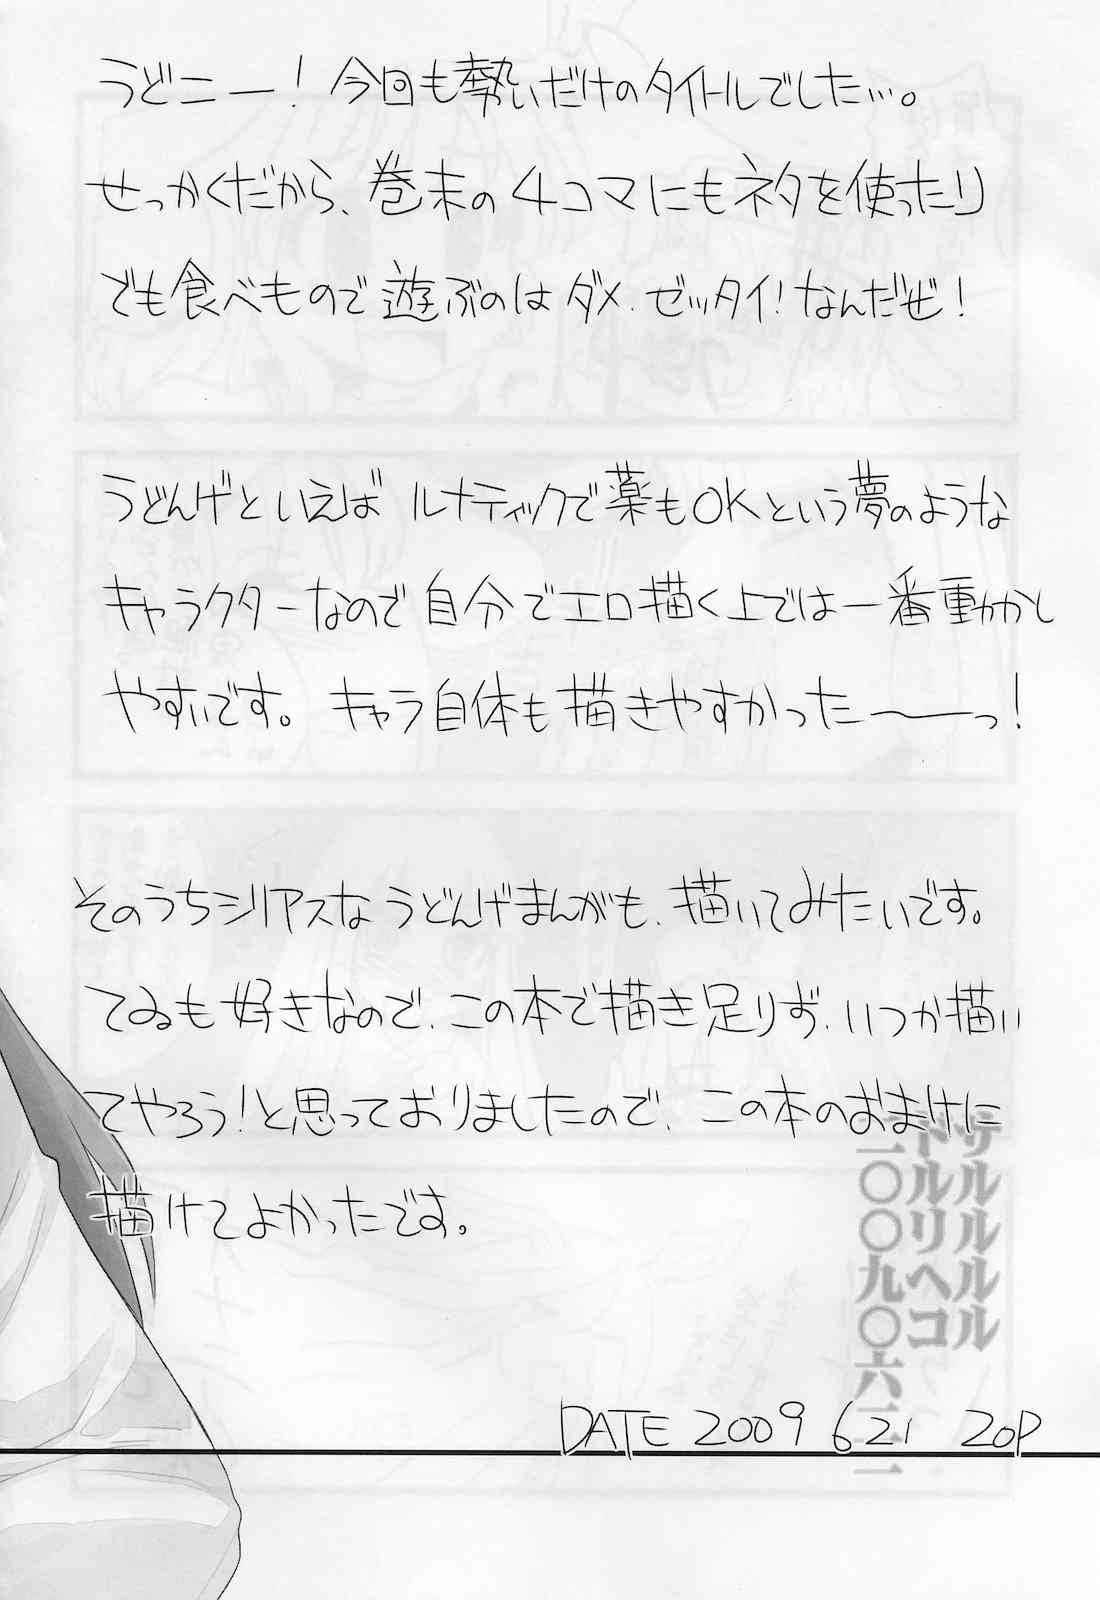 うどニー！今回も勢いだけのタイトルでした…。
せっかくだから、巻末の4コマにもネタを使ったり
でも食べもので遊ぶのはダメ、ゼッタイ！なんだぜ！
うどんげといえばルナティックで薬もOKという夢のような
キャラクターなので自分でエロ描く上では一番動かし
やすいです。キャラ自体も描きやすかった〜ーっ！
そのうちシリアスなうどんげまんがも、描いてみたいです。
てゐも好きなので、この本で描き足りず、いつか描い
てやろう！と思っておりましたので、この本のおまけに
描けてよかったです。
サルルルル
ドルリヘコ
二〇〇九〇六二一
DATE 2009 621 ZOP